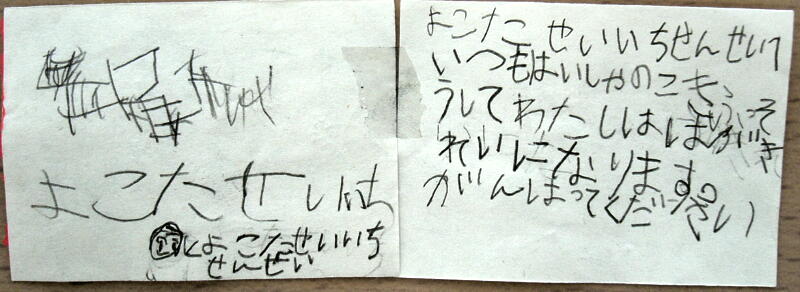 よこたせいいち
よこたせいいち
せんせい
よこた せいいちせんせい
いつもはいしゃの
うしてわたしははがき
れいになります。
がんばってください